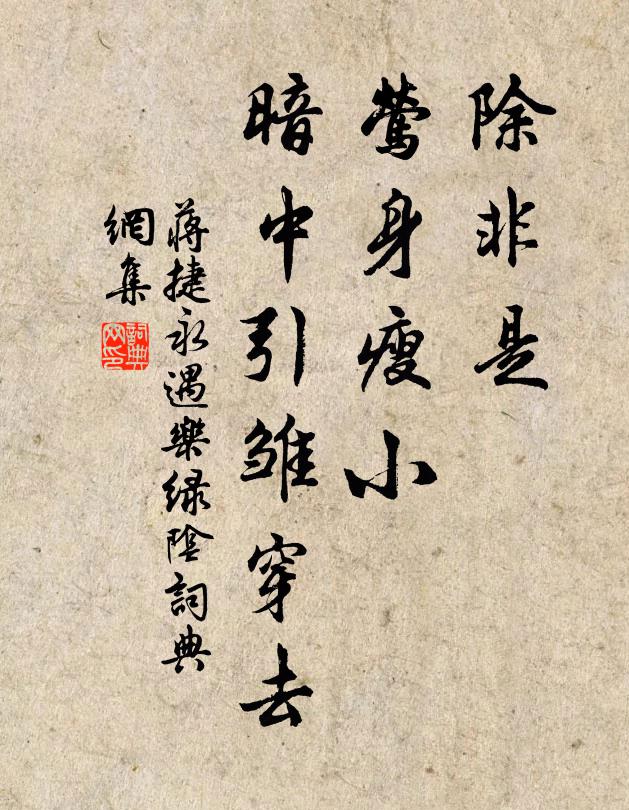 除非是
鶯身瘦小
暗中引雛穿去
蔣捷永遇樂綠陰詞典
網集
詞典
网印